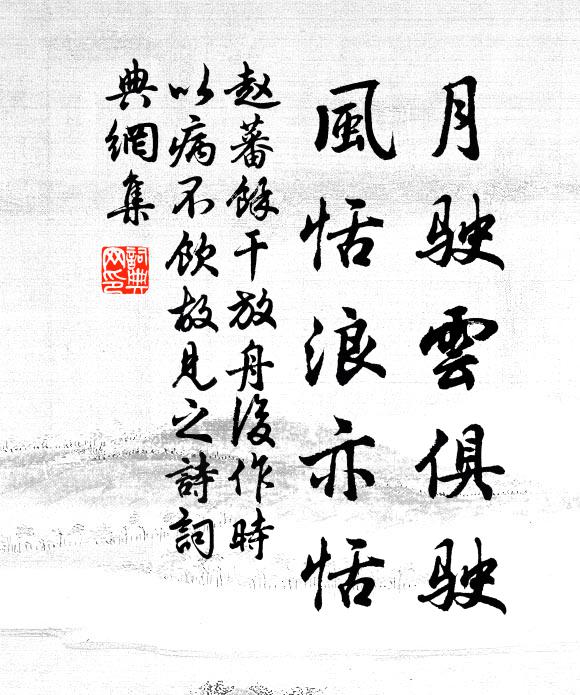 月駛雲俱駛
風恬浪亦恬
赵蕃餘干放舟後作時
以病不飲故見之詩詞
典網集
詞典
网印